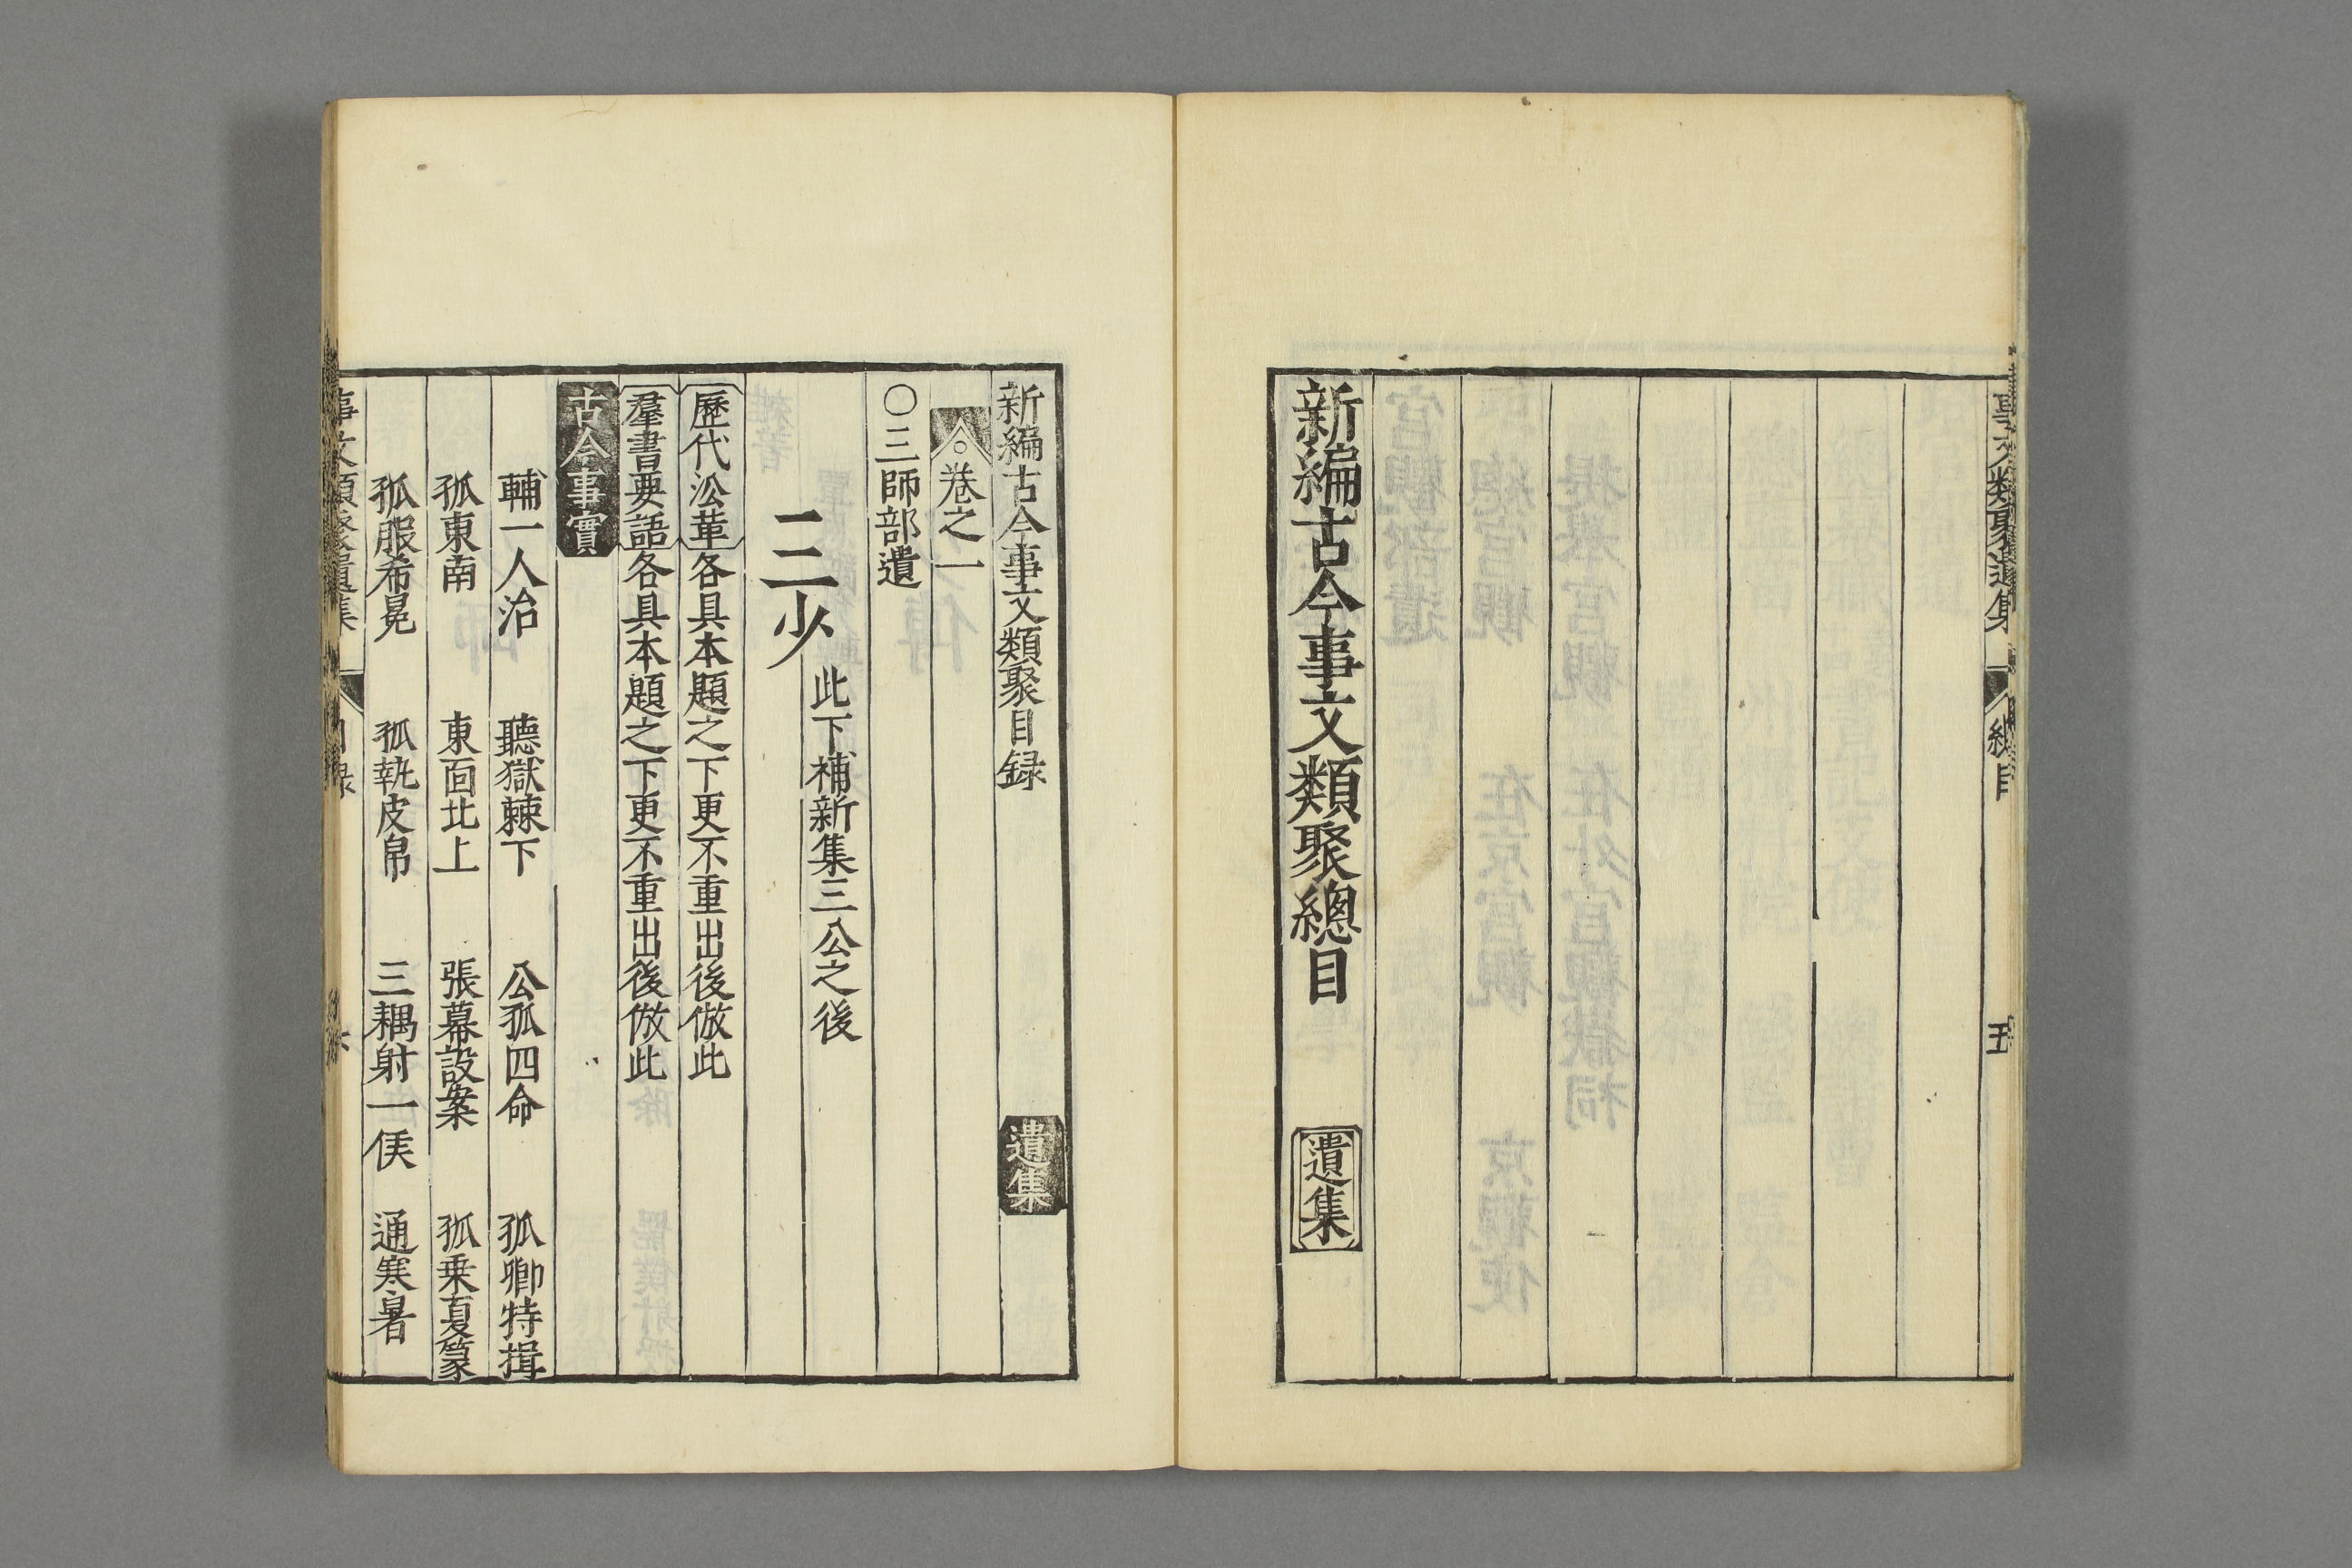 事文類聚遺集 總目 五
新編古今事文類聚總目 遺集
新編古今事文類聚目録 遺集
卷之一
〇三師部遺
三少 此下補新集三公之後
歷代㳂革各具本題之下更不重出後倣此
羣書要語各具本題之下更不重出後倣此
古今事實
輔一人治 聽獄棘下 公孤四命 孤卿特揖
孤東南 東面北上 張幕設案 孤乗夏篆
孤服希冕 孤執皮帛 三耦射一侯 通寒暑
事文類聚遺集 目録 六